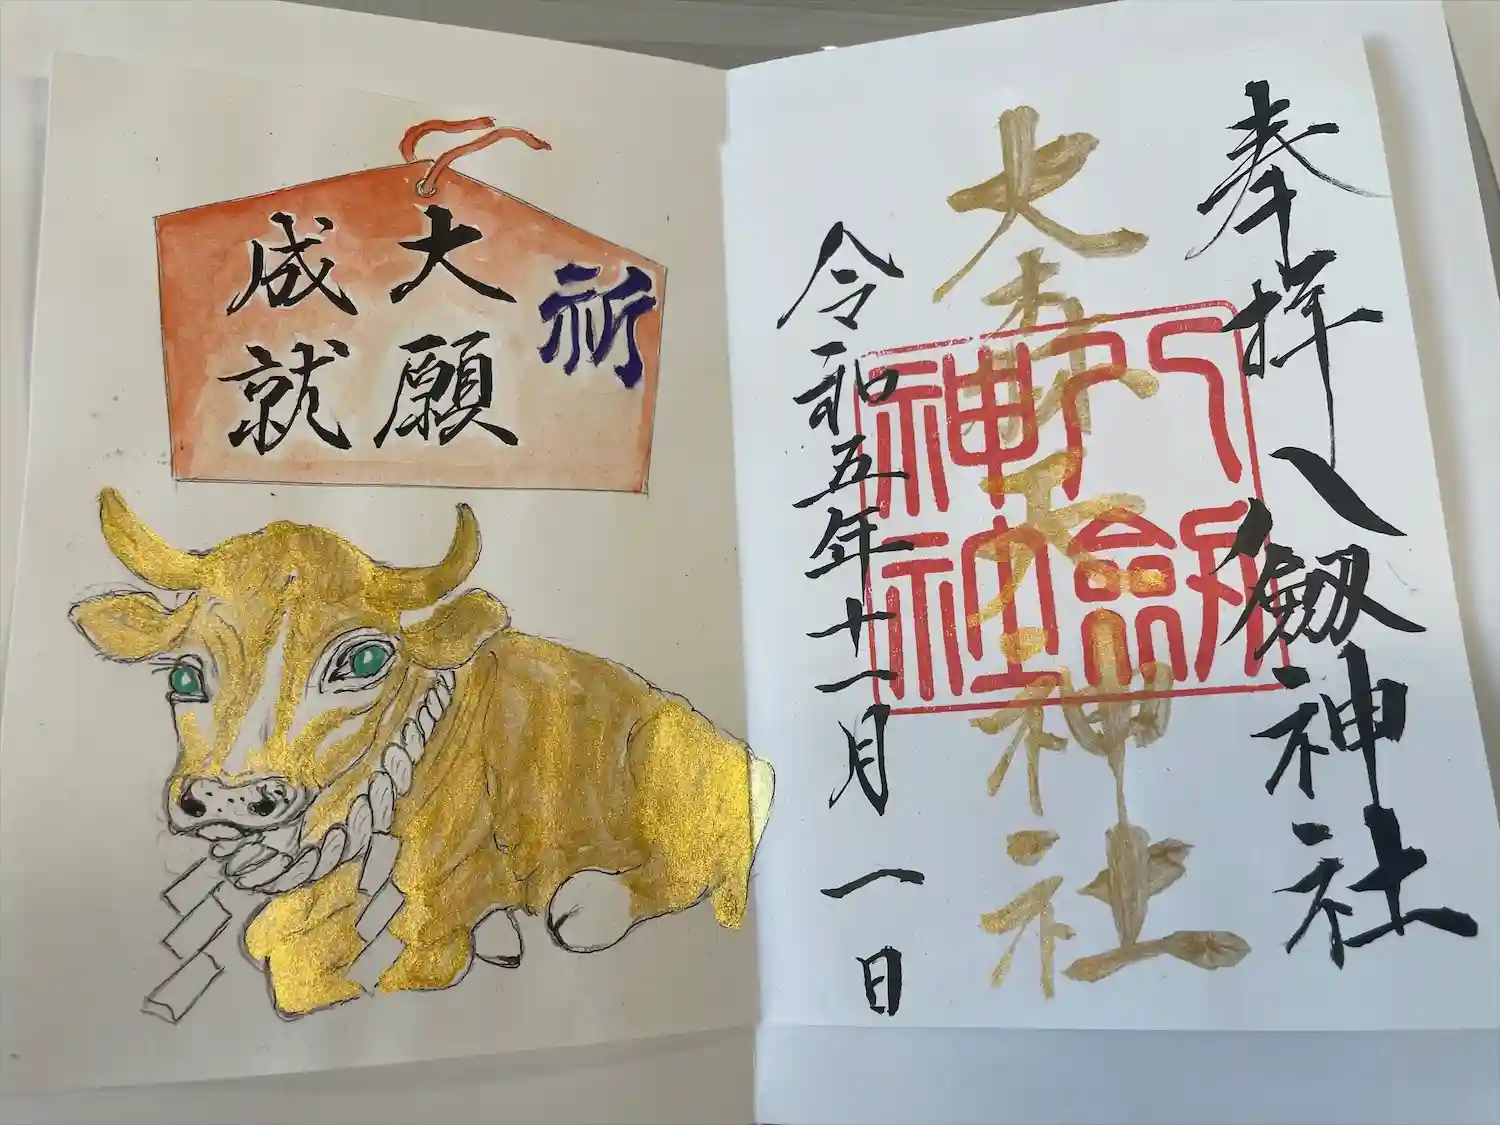 祈
大願
成就
奉拝
八劔神社
大
神社
八劔
神社
令和五年十一月一日